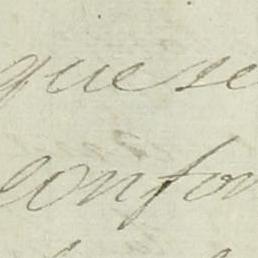 que se
confor